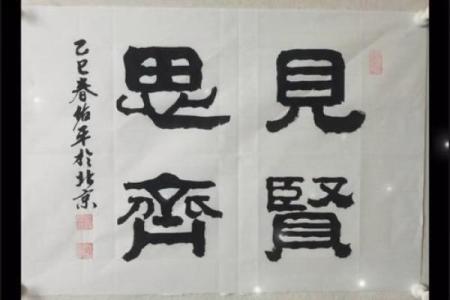 見賢
思齊
乙巳春佑平於北京